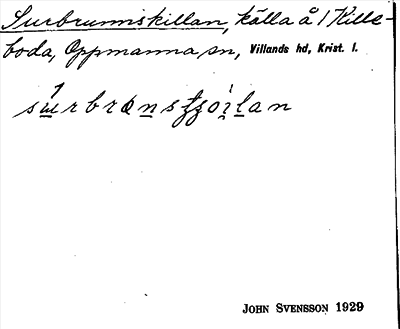 Surbrunnskillan, källa å 1 Kille-
boda, Oppmanna sn, Villands hd, Krist. l.
JOHN SVENSSON 1929